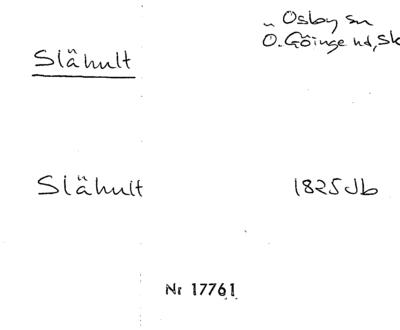 Osby sn
Slähult
Ö. Göinge hd, Sk
Slähult 1825 Jb
Nr 17761